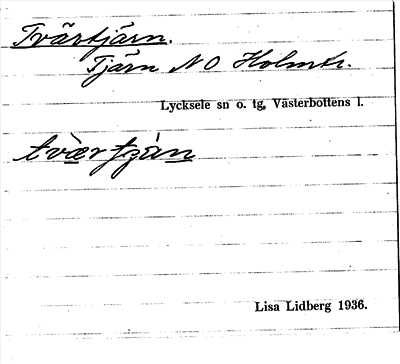 Tvärtjärn.
Tjärn N O Holmtr.
Lycksele sn o. tg, Västerbottens l.
tvæ̀rtjàn
Lisa Lidberg 1936.